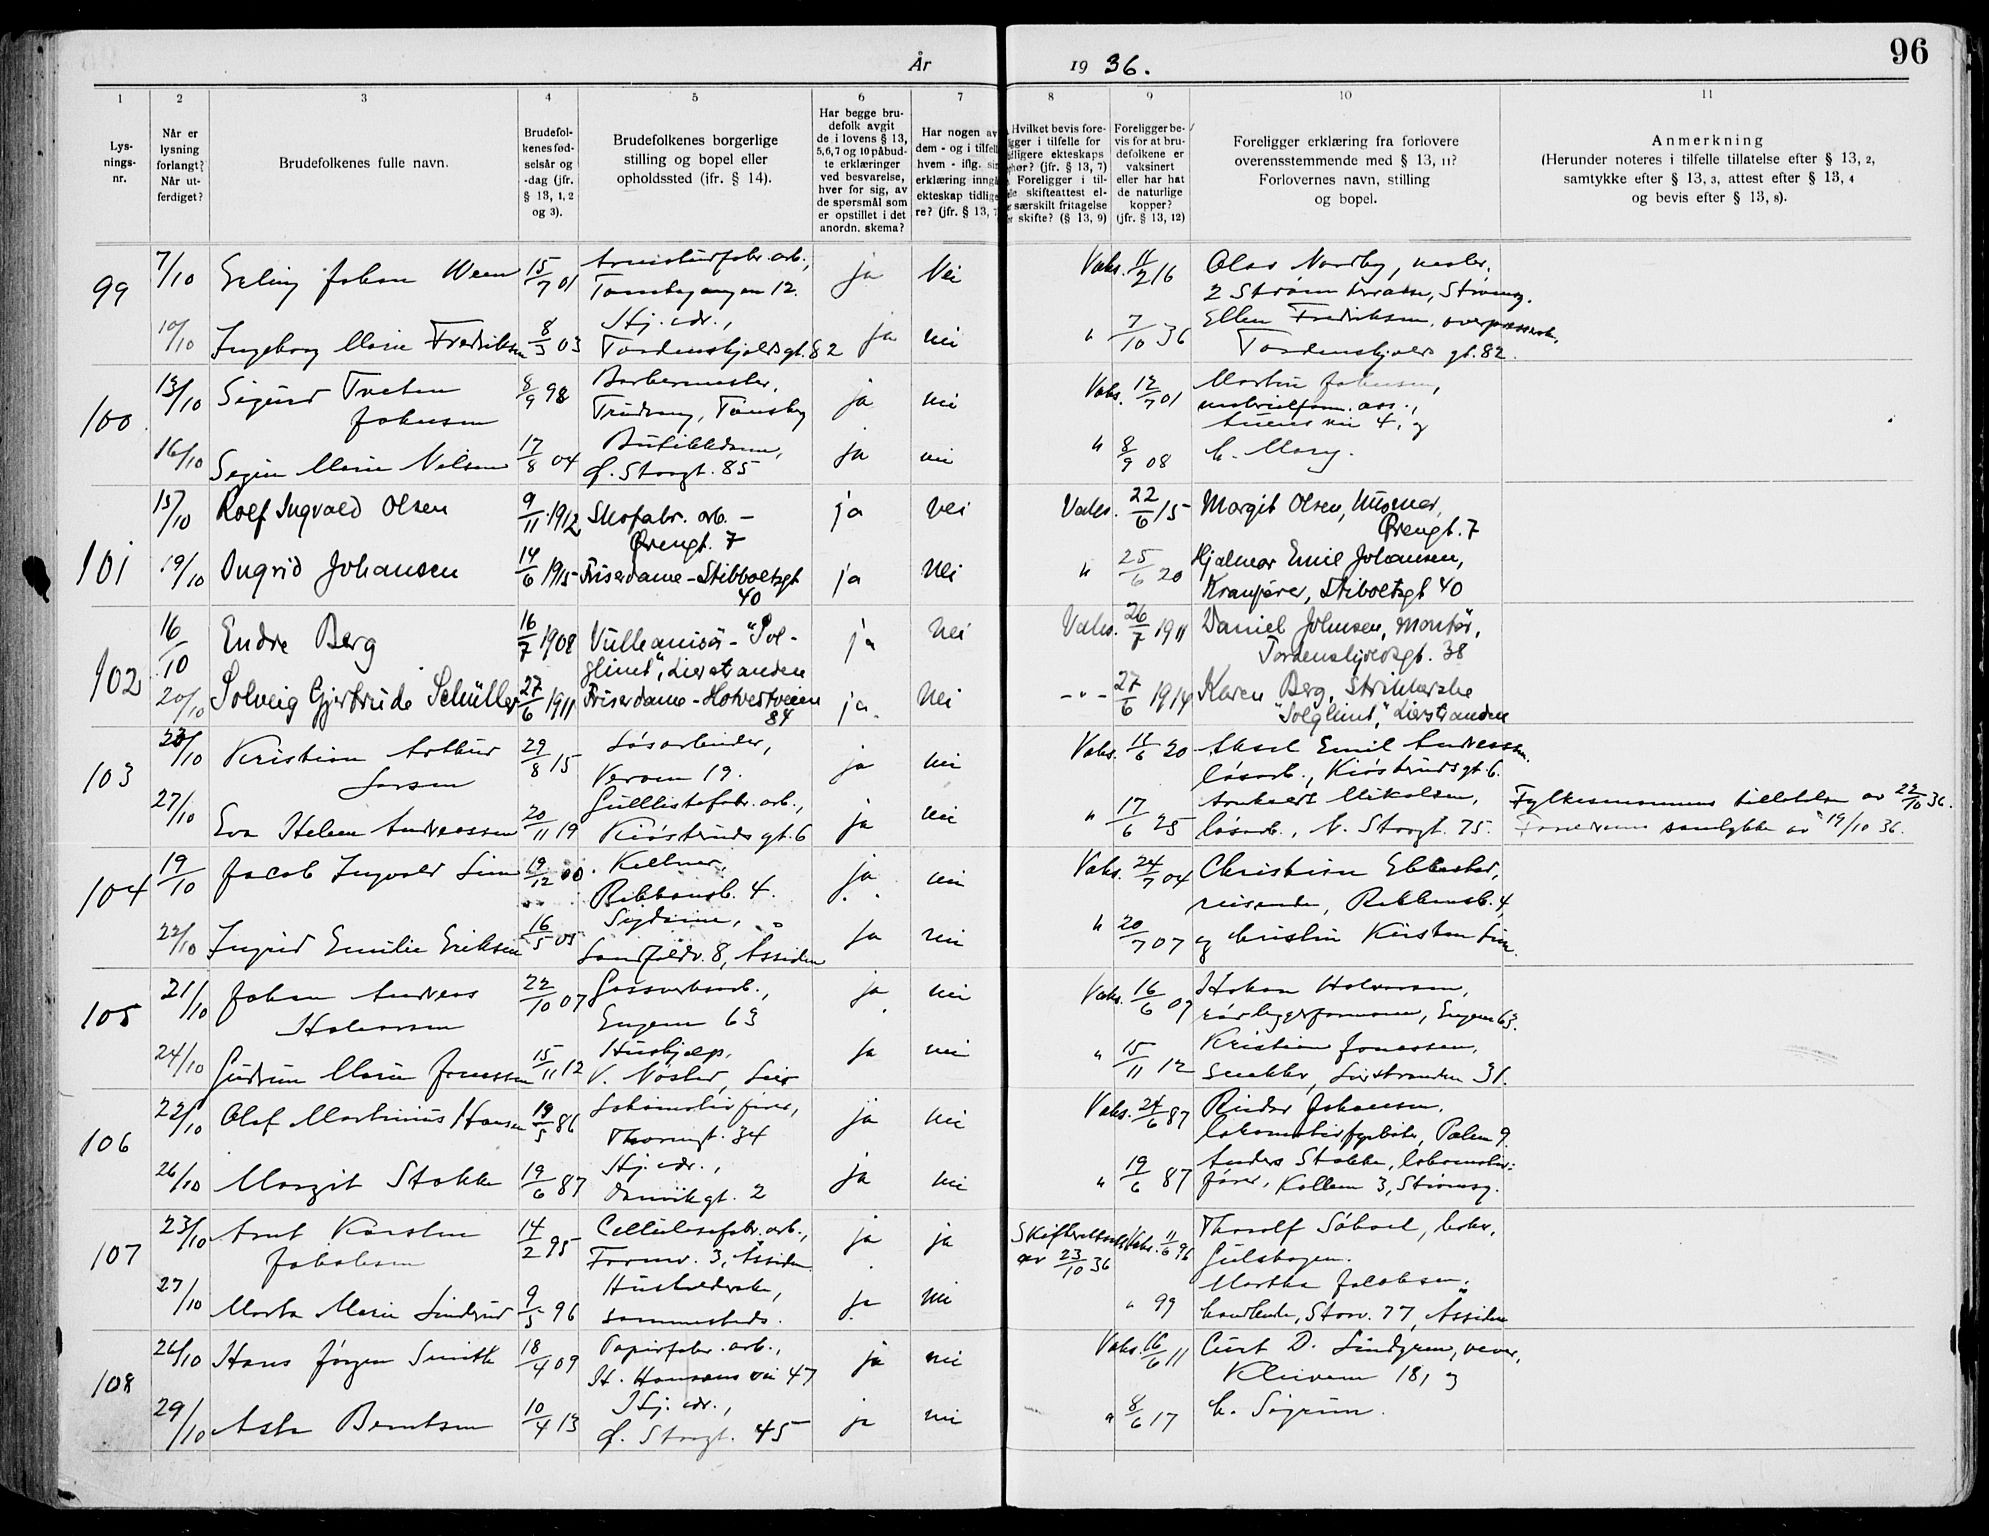 År 1936.
96
1 2 3 4 5 6 7 8 9 10 11
Lysningsnr.
Når er lysning forlangt? Når utferdiget?
Brudefolkenes fulle navn.
Brudefolkenes fødselsår og -dag (jfr. § 13, 1, 2 og 3).
Brudefolkenes borgerlige stilling og bopel eller opholdssted (jfr. § 14).
Har begge brudefolk avgit de i lovens § 13, 5,6,7 og 10 påbudte erklæringer ved besvarelse, hver for sig, av de spørsmål som er opstillet i det anordn. skema?
Har nogen av dem - og i tilfelle hvem - iflg. erklæring ekteskap re? (jfr. § 13,
Hvilket bevis fore- i tilfelle for ekteskaps (jfr. § 13, 7) Foreligger i til- skifteattest el- særskilt fritagelse skifte? (§ 13, 9)
Foreligger bevis for at brudefolkene er vaksinert eller har hat de naturlige kopper? (jfr. § 13, 12)
Foreligger erklæring fra forlovere overensstemmende med § 13, 11? Forlovernes navn, stilling og bopel.
Anmerkning
(Herunder noteres i tilfelle tillatelse efter § 13, 2, samtykke efter § 13, 3, attest efter § 13, 4 og bevis efter § 13, 8).
99 7/10 Erling Johan 15/7 01 12. ja Nei Vaks. 11/2 16 Olav Nordby,
2 Strøm terrasse, Strømsg.
10/10 Ingeborg Marie Fredriksen 8/3 03 Hj. vær., Tordenskjoldsgt. 82 ja nei " 7/10 36 Ellen Fredriksen,
Tordenskjolds gt. 82.
100 13/10 Sigurd Tveten Johnsen 8/9 98 Barbermester, Tønsberg ja nei Vaks. 12/7 01 Martin Johnsen,
4, og
16/10 Marie Nilsen 17/8 04 Butikkdame, Ø. Storgt. 85 ja nei " 8/9 08 Mary.
101 15/10 Rolf Ingvald Olsen 9/11 1912 Skofabr. arb. - Ørengt. 7 ja nei Vaks. 22/6 15 Margit Olsen, Husmor,
Ørengt. 7
19/10 Ingrid Johansen 14/6 1915 Friserdame - Stibboltsgt 40 ja nei " 25/6 20 Hjalmar Emil Johansen,
Kranfører, Stiboltsgt 40
102 16/10 Endre Berg 16/7 1908 Vulkanisør - "Solglimt", Lierstranden ja nei Vaks. 26/7 1911 Daniel Johnsen, Montør,
Tordenskjoldsgt. 38
20/10 Solveig Gjertrude Schüller 27/6 1911 Friserdame - Hotvedtveien 84 ja. nei - " - 27/6 1914 Karen Berg, Strikkerske
"Solglimt," Lierstranden
103 23/10 Kristian Arthur Larsen 29/8 15 Løsarbeider, 19. ja nei Vaks. 11/6 20 Aksel Emil Andreassen,
løsarb., Kiøsterudsgt. 6.
27/10 Eva Helene Andreassen 20/11 19 Gulllistefabr. arb., Kiøsteruds gt. 6 ja nei " 17/6 25 Mikalsen,
løsarb., N. Storgt. 75. Fylkesmannens tillatelse av 22/10 36.
Foreldrenes samtykke av 19/10 36.
104 19/10 Jacob Ingvald Lien 19/12 00 Kelner, 4. ja nei Vaks. 24/7 04 Christian
reisende, 4,
22/10 Ingrid Emilie Eriksen 16/5 05 Sydame, 8, Åssiden ja nei " 20/7 07 og Kirsten Lien.
105 21/10 Johan Andreas Halvorsen 22/10 07 Gassverksarb., Engene 63 ja nei Vaks. 16/6 09 Håkon Halvorsen,
Engene 63.
24/10 Gudrun Marie Jonassen 15/11 12 Hushjelp, V. Nøsted, Lier ja nei " 15/11 12 Kristian Jonassen,
snekker, Lierstranden 31.
106 22/10 Olaf Martinius Hansen 19/5 86 Lokomotivfører, 34 ja nei Vaks. 24/6 87 Reidar Johansen,
lokomotivfyrbøter, 9.
26/10 Margit Stokke 19/6 87 Hj. vær., Danvikgt. 2 ja nei " 19/6 87 Anders Stokke, lokomotiv-
fører, Kollen 3, Strømsg.
107 23/10 Arnt Karsten Jakobsen 14/2 95 Cellulosefabr. arb., 3, Åssiden ja ja Skifteattest av 23/10 36 Vaks. 11/6 96 Thoralf
Gulskogen.
27/10 Marta Marie Lindgrud 9/5 96 Husholderske, sammesteds. ja nei " 99 Martha Jacobsen,
Storv. 77, Åssiden
108 26/10 Hans Jørgen Smith 18/4 09 Papirfabr. arb., H. Hansens vei 47 ja nei Vaks. 16/6 11 Curt D. Lindgren, vever,
Kleivene 18, og
29/10 Asta Berntsen 10/4 13 Hj. vær., Ø. Storgt. 45 ja nei " 8/6 17 Sigrun.